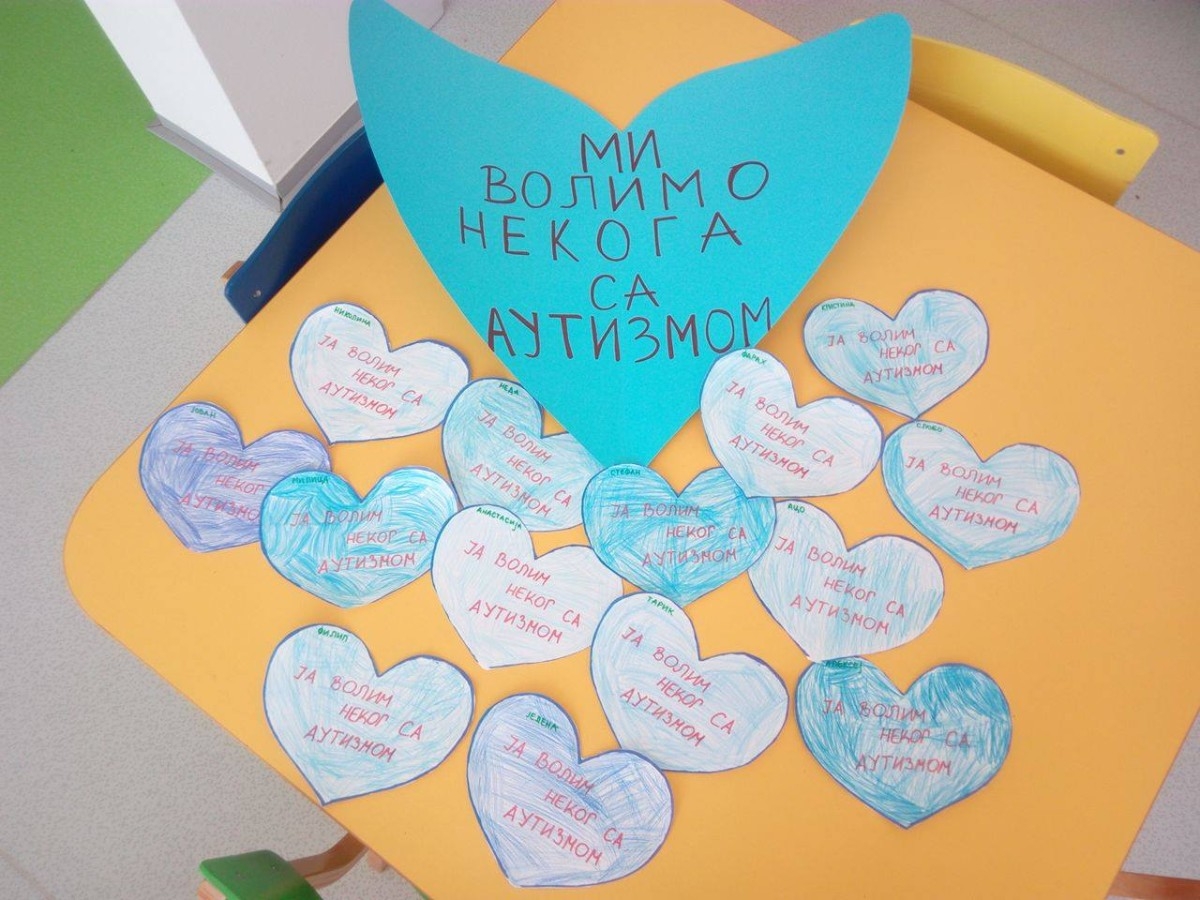 МИ
ВОЛИМО
НЕКОГА
СА
АУТИЗМОМ
НИКОЛИНА
ЈА ВОЛИМ
НЕКОГ СА
АУТИЗМОМ
КРИСТИНА
ЈА ВОЛИМ
НЕКОГ СА
АУТИЗМОМ
ФАРАХ
ЈА ВОЛИМ
НЕКОГ СА
АУТИЗМОМ
НЕЂА
ЈА ВОЛИМ
НЕКОГ СА
АУТИЗМОМ
ЈОВАН
ЈА ВОЛИМ
НЕКОГ
АУТИЗМО
ЈА ВОЛИМ
НЕКОГ СА
АУТИЗМОМ
МИЛИЦА
ЈА ВОЛИМ
НЕКОГ СА
АУТИЗМОМ
СТЕФАН
ЈА ВОЛИМ
НЕКОГ СА
АУТИЗМОМ
АНАСТАСИЈА
ЈА ВОЛИМ
НЕКОГ СА
АУТИЗМОМ
АЦО
ЈА ВОЛИМ
НЕКОГ СА
АУТИЗМОМ
ТАРИК
ЈА ВОЛИМ
НЕКОГ СА
АУТИЗМОМ
ФИЛИП
ЈА ВОЛИМ
НЕКОГ СА
АУТИЗМОМ
ЈЕЛЕНА
ЈА ВОЛИМ
НЕКОГ СА
АУТИЗМОМ
ЈА ВОЛИМ
НЕКОГ СА
АУТИЗМОМ